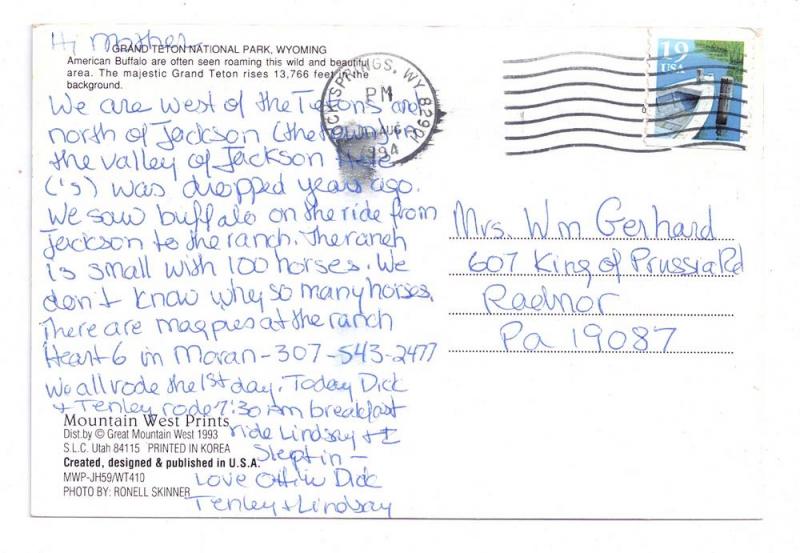 Hi Mother
GRAND TETON NATIONAL PARK, WYOMING
American Buffalo are often seen roaming this wild and beautiful
area. The majestic Grand Teton rises 13,766 feet in the
background.
We are west of the Tetons and
north of Jackson (the town) in
the valley of Jackson Hole
('s) was dropped years ago.
We saw buffalo on the ride from
Jackson to the ranch. The ranch
is small with 100 horses. We
don't know why so many horses.
There are magpies at the ranch
Heart 6 in Moran - 307-543-2477
We all rode the 1st day. Today Dick
+ Tenley rode 7:30 Am breakfast
ride Lindsay + I
Slept in -
Love Dick
Tenley + Lindsay
Mountain West Prints
Dist.by © Great Mountain West 1993
S.L.C. Utah 84115 PRINTED IN KOREA
Created, designed & published in U.S.A.
MWP-JH59/WT410
PHOTO BY: RONELL SKINNER
SPRINGS, WY 82901
PM
AUG
1994
19
USA
Mrs. Wm Gerhard
607 King of Prussia Rd
Radnor
Pa 19087